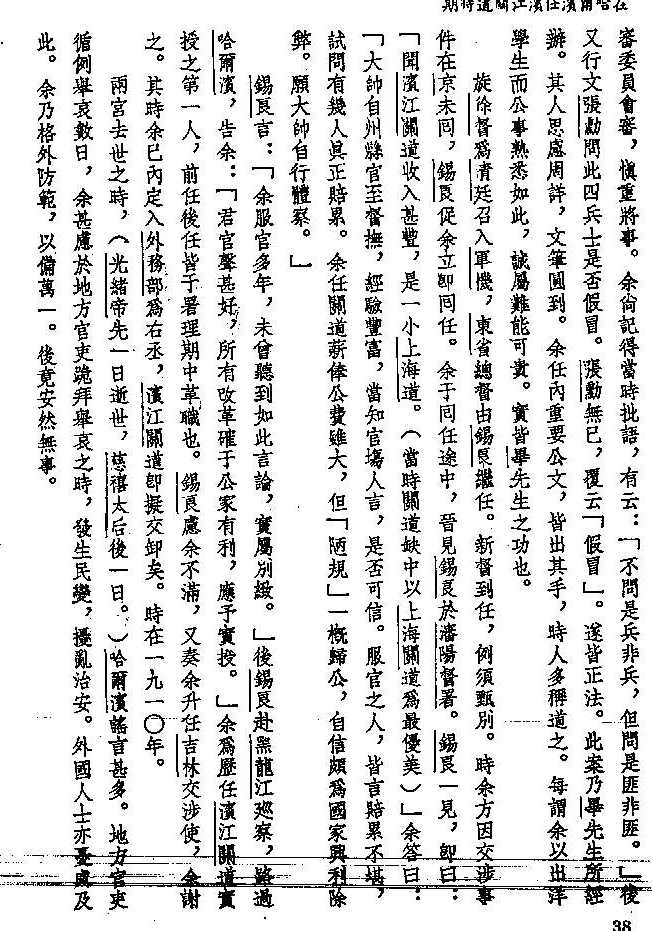 在哈爾濱任濱江關道時期
審委員會審，愼重將事。余尙記得當時批語，有云：「不問是兵非兵，但問是匪非匪。」後
又行文張勳問此四兵士是否假冒。張勳無已，覆云「假冒」。遂皆正法。此案乃畢先生所經
辦。其人思慮周詳，文筆圓到。余任內重要公文，皆出其手，時人多稱道之。每謂余以出洋
學生而公事熟悉如此，誠屬難能可貴。實皆畢先生之功也。
旋徐督爲淸廷召入軍機，東省總督由錫良繼任。新督到任，例須甄別。時余方因交涉事
件在京未囘，錫良促余立卽囘任。余于囘任途中，晉見錫良於瀋陽督署。錫良一見，卽曰：
「聞濱江關道收入甚豐，是一小上海道。（當時關道缺中以上海關道爲最優美）」余答曰：
「大帥自州縣官至督撫，經驗豐富，當知官場人言，是否可信。服官之人，皆言賠累不堪，
試問有幾人眞正賠累。余任關道薪俸公費雖大，但「陋規」一槪歸公，自信頗爲國家興利除
弊。願大帥自行體察。」
錫良言：「余服官多年，未曾聽到如此言論，實屬別緻。」後錫良赴黑龍江巡察，路過
哈爾濱，告余：「君官聲甚好，所有改革確于公家有利，應予實授。」余爲歷任濱江關道實
授之第一人，前任後任皆于署理期中革職也。錫良慮余不滿，又奏余升任吉林交涉使，余謝
之。其時余已內定入外務部爲右丞，濱江關道卽擬交卸矣。時在一九一〇年。
兩宮去世之時，（光緒帝先一日逝世，慈禧太后後一日。）哈爾濱謠言甚多。地方官吏
循例舉哀數日，余甚慮於地方官吏跪拜舉哀之時，發生民變，擾亂治安。外國人士亦憂慮及
此。余乃格外防範，以備萬一。後竟安然無事。
38